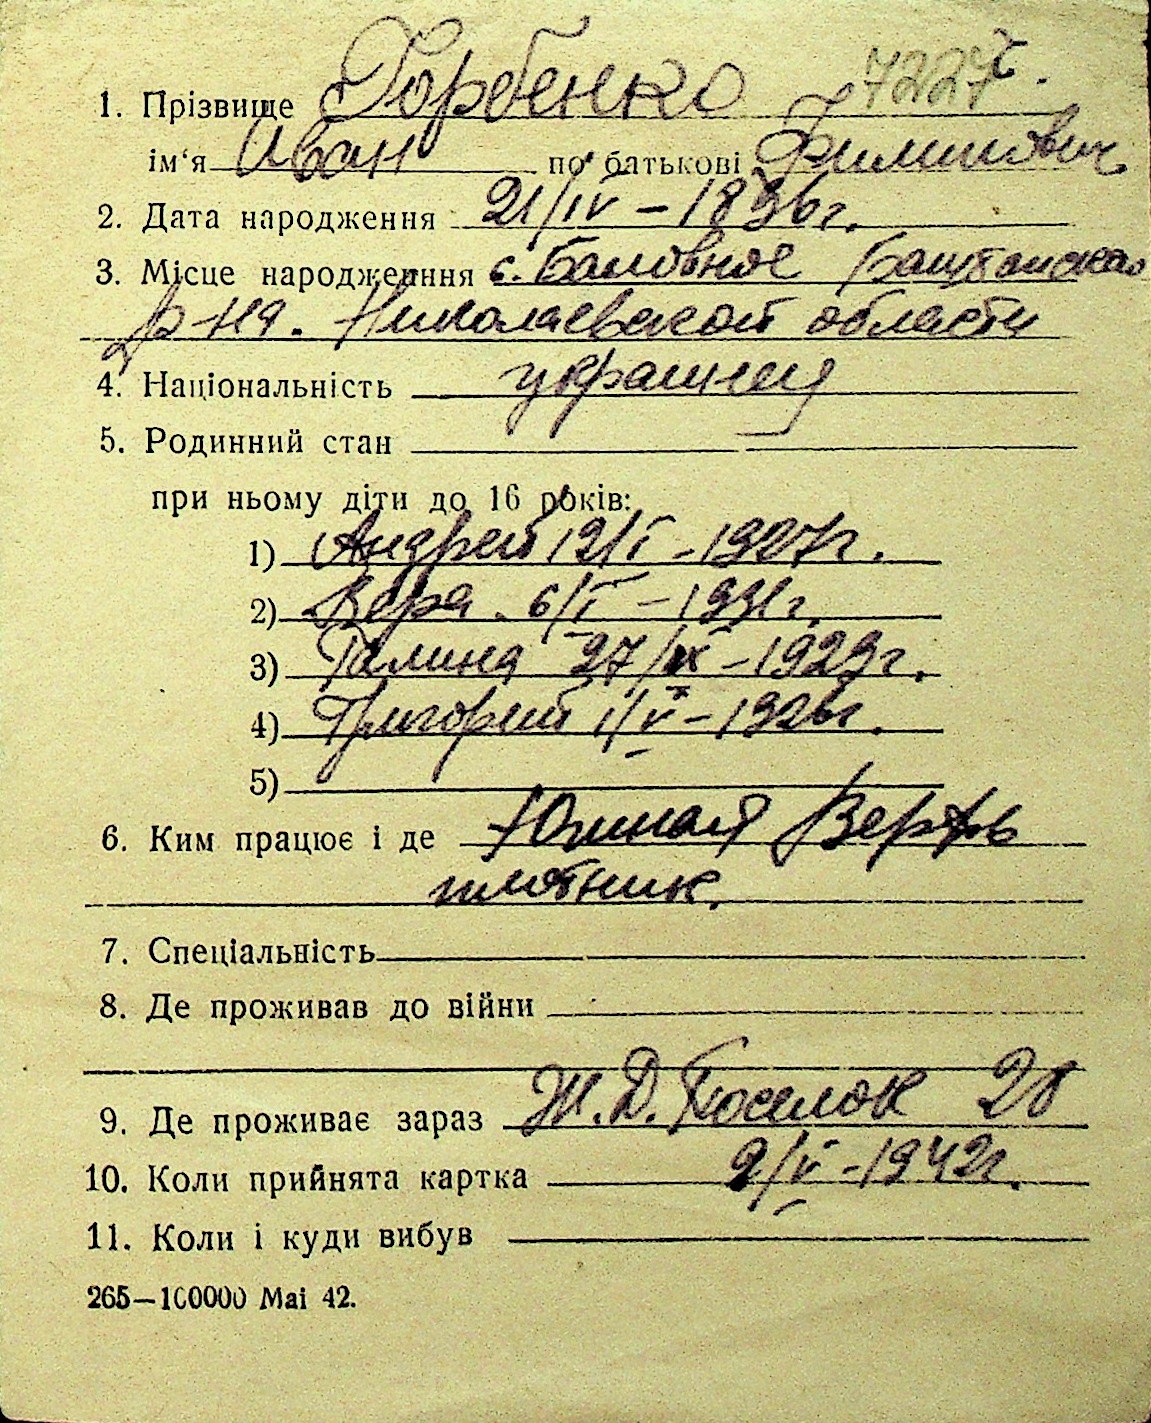 1. Прізвище Горбенко 7227
ім'я Иван по батькові Филипович
2. Дата народження 21/IV – 1896г.
3. Місце народження с. Баловное Баштанского
р-на. Николаевской области
4. Національність украинец
5. Родинний стан
при ньому діти до 16 років:
1) Андрей 12/I – 1927г.
2) Вера. 6/I – 1931г.
3) Галина 27/IX – 1929г.
4) Григорий 1/V – 1926г.
5)
6. Ким працює і де Южная Верфь
плотник.
7. Спеціальність
8. Де проживав до війни
9. Де проживає зараз Ж.Д. Поселок 28
10. Коли прийнята картка 2/V – 1942г.
11. Коли і куди вибув
265—100000 Маі 42.